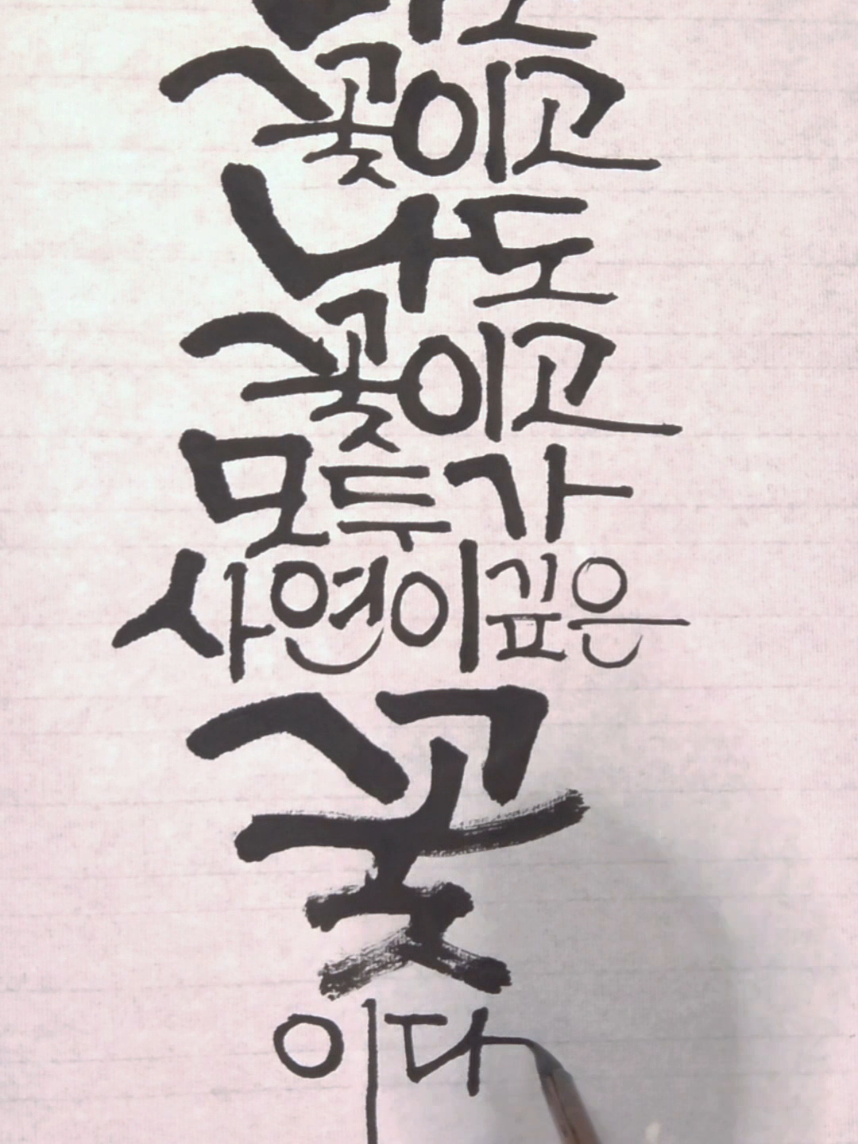 꽃이고
나도
꽃이고
모두가
사연이깊은
꽃
이다